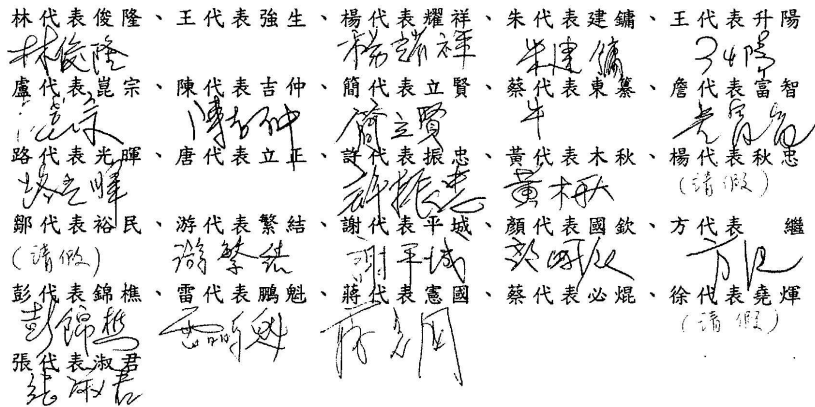 林代表俊隆、王代表強生、楊代表耀祥、朱代表建鏞、王代表升陽
林俊隆 楊耀祥 朱建鏞
盧代表崑宗、陳代表吉仲、簡代表立賢、蔡代表東纂、詹代表富智
陳吉仲 簡立賢
路代表光暉、唐代表立正、許代表振忠、黃代表木秋、楊代表秋忠
路光暉 許振忠 黃木秋 (請假)
鄒代表裕民、游代表繁結、謝代表平城、顏代表國欽、方代表 繼
(請假) 游繁結 謝平城
彭代表錦樵、雷代表鵬魁、蔣代表憲國、蔡代表必焜、徐代表堯煇
彭錦樵 (請假)
張代表淑君
張淑君